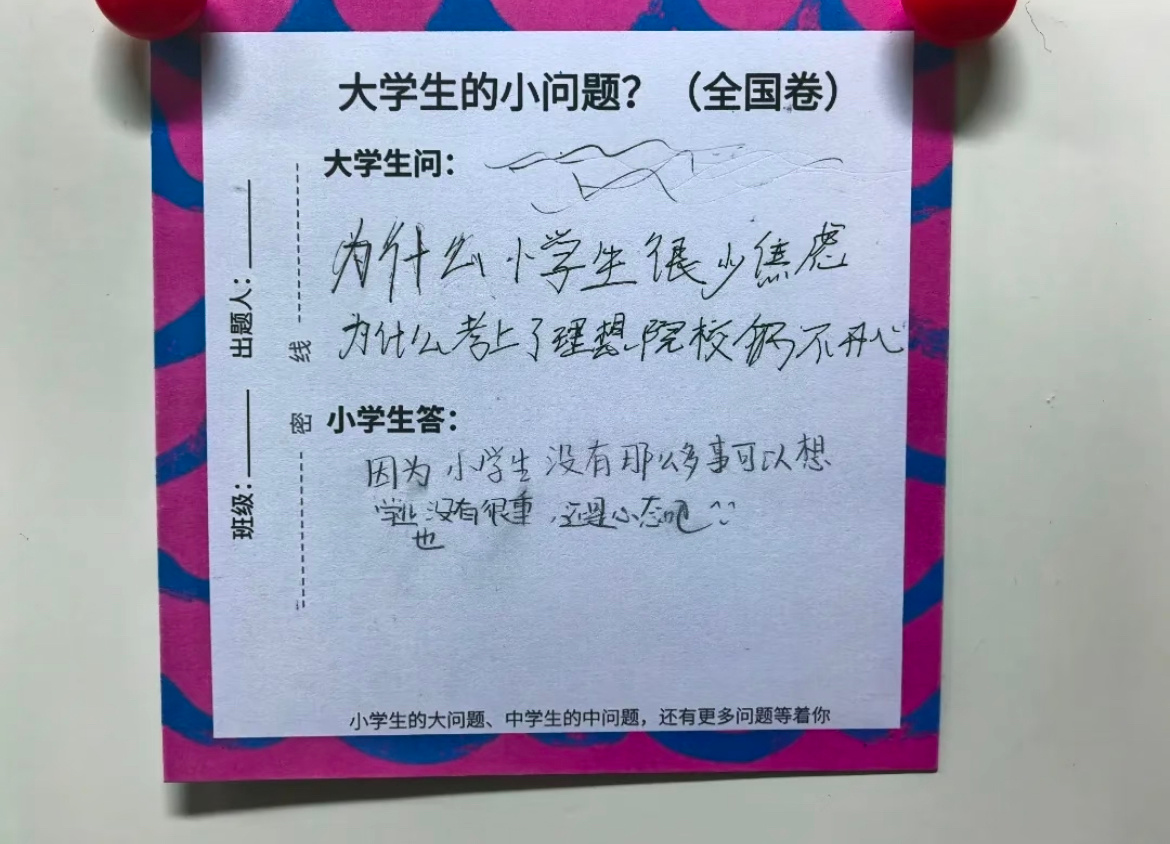 大学生的小问题？（全国卷）
大学生问：
为什么小学生很少焦虑
为什么考上了理想院校仍不开心
小学生答：
因为小学生没有那么多事可以想
学业没有很重，还是心态吧^^
也
出题人：
班级：
线
密
小学生的大问题、中学生的中问题，还有更多问题等着你